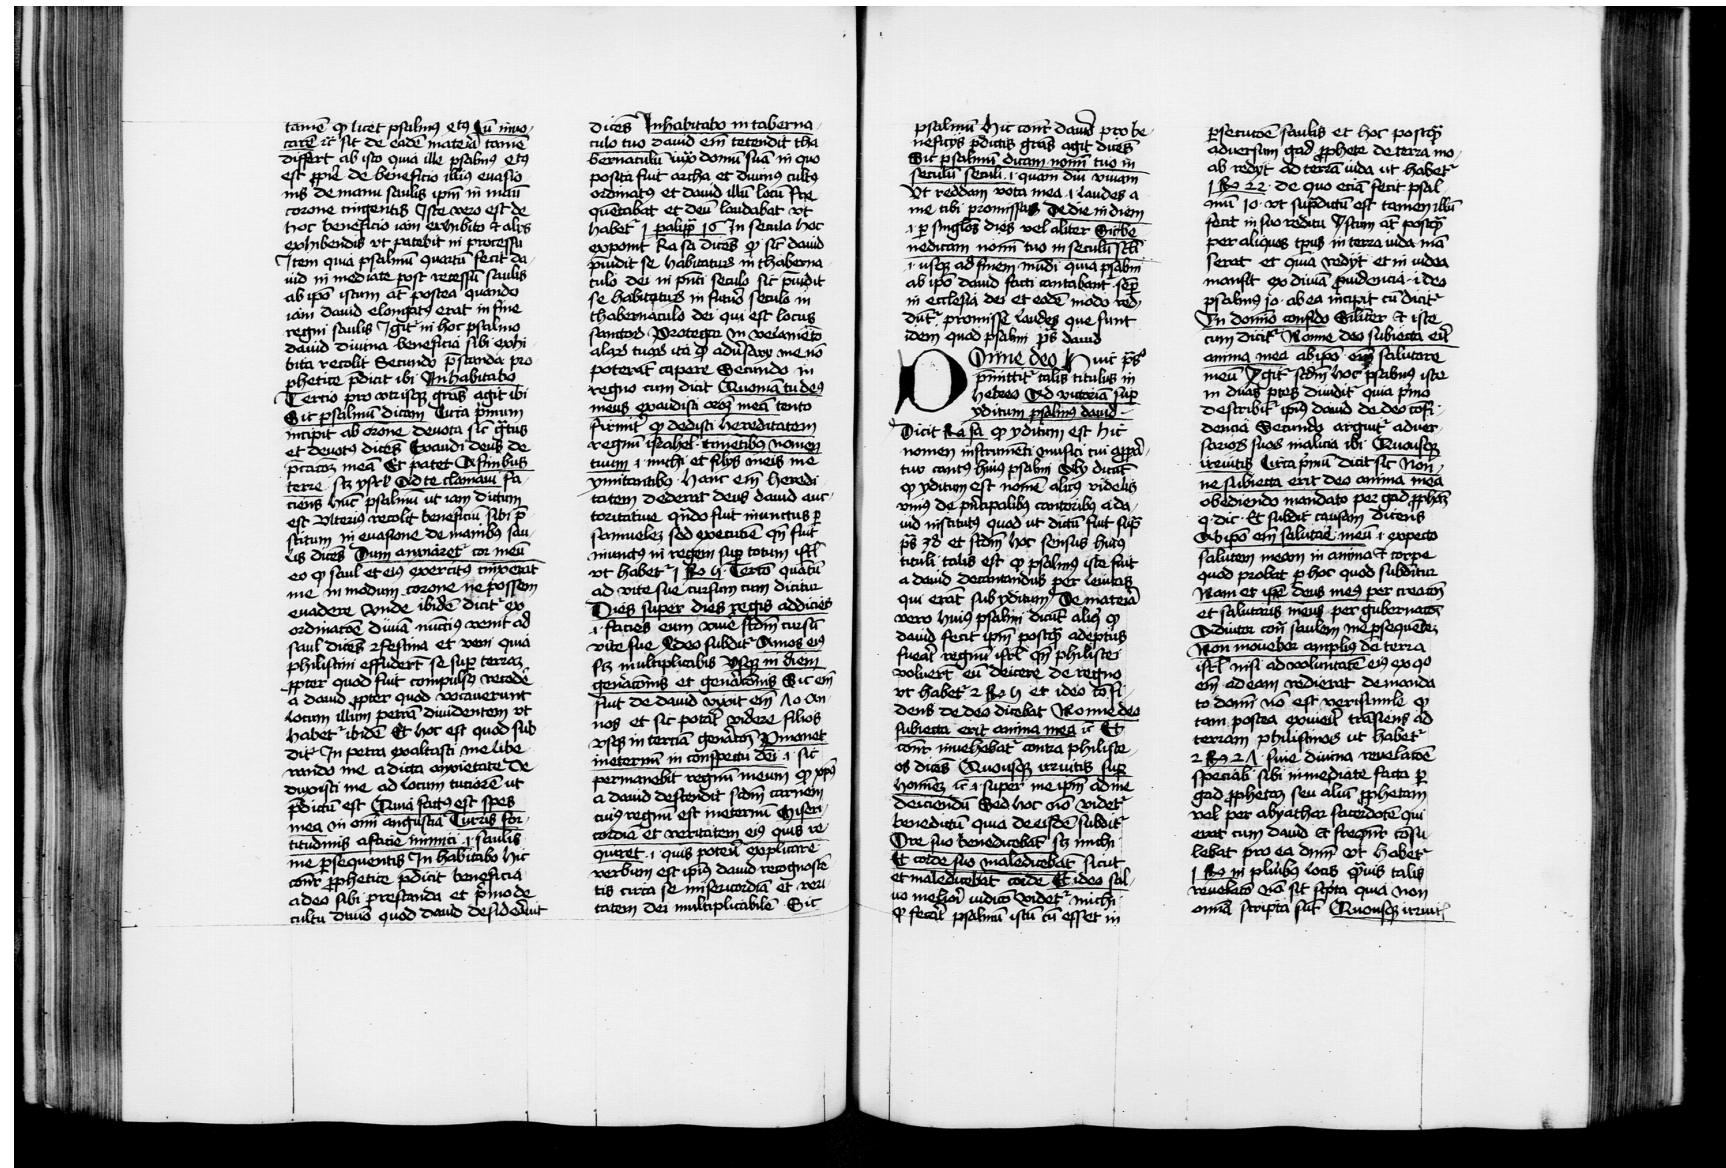 tamē ꝙ licet psalmꝰ etꝰ Cū invo-
carē ꝛc̄ sit de eadē materia tamē
differt ab isto quia ille psalmꝰ etꝰ
est ppͥe de beneficio illiꝰ evasio
nis de manu saulis ipm̄ in mod̄
corone cingentis Iste vero est de
hoc beneficio iam exhibito ⁊ alijs
exhibendis vt patebit in processu
Item quia psalmū quartū fecit da
uid in mediate post recessū saulis
ab ipō istum at̄ postea quando
iam david elongatꝰ erat in fine
regni saulis Igit̉ in hoc psalmo
david divina beneficia sibi exhi
bita recolit Secundo p̄standa pro
phetice p̄dicit ibi Inhabitabo
Tercio pro vtrisqꝫ gr̄as agit ibi
Sic psalmū dicam Circa p̄mum
incipit ab orōne devota sic̄ gͣtus
et devotꝰ dicēs Exaudi deus de
p̄catōꝫ meā Et patet A finibus
terre sꝫ ysrl̄ Ad te clamavi fa
ciens hūc psalmū ut iam dictum
est Vlterius recolit beneficiū sibi p̄
stitum in evasione de manibꝰ sau
lis dicēs Dum anxiaret̉ cor meū
eo ꝙ saul et eiꝰ exercitꝰ cinxerat
me in modum corone ne possem
evadere vnde ibidē dicit̉ ex
ordinatōe diuīa nūcciꝰ venit ad
saul dicēs ꝯfestina et veni quia
philistini effudert̄ se sup̄ terraꝫ
ꝓpter quod fuit compulsꝰ recedē
a david ꝓpter quod vocaverunt
locum illum petrā dividentem vt
habet̉ ibidē Et hoc est quod sub
dit̉ In petra exaltasti me libe
rando me a dicta anxietate De
duxisti me ad locum tuciorē ut
p̄dictū est Quia factꝰ est spes
mea in om̄i angustia Turris for-
titudinis a facie inimici .i. saulis
me ꝑsequentis In habitabo hic
cōnt̉ ꝓphetice p̄dicit beneficia
a deo sibi prestanda et p̄mo de
cultu divīo quod david desiderauit
dicēs Inhabitabo in taberna-
culo tuo david em̄ tetendit tha
bernaculū iuxͣ domū suā in quo
posita fuit archa et divinus cultꝰ
ordinatꝰ et david illū locū fre
quētabat et deū laudabat vt
habet̉ 1 ꝑalipp̄ 16 In secula hoc
exponit Ra sa dicēs ꝙ sic̄ david
p̄uidit se habitaturꝰ in thaberna
culo dei in p̄nti seculo sic p̄uidit
se habitaturꝰ in futuro seculo in
thabernaculo dei qui est locus
sanctorꝫ Protegar in velamēto
alarꝫ tuarꝫ ita ꝙ adv̄sarij me nō
poterāt capere Secundo in
regno cum dicit Quoniā tu deꝰ
meus exaudisti orōꝫ meā tento
firmit̉ ꝙ dedisti hereditatem
regnū israhel timētibꝰ nomen
tuum .i. michi et filijs meis me
ymitantibꝰ Hanc em̄ heredi
tatem dederat deus david auc
toritative qn̄do fuit iniunctus ꝑ
samuelēꝫ sed executiē qn̄ fuit
iniunctꝰ in regem sup̄ totum isrl̄
vt habet̉ 1 Rꝫ 5 Tertō quātū
ad vite sue cursum cum dicitur
Dies super dies regis addicies
.i. facies eum vivē scdm̄ cursū
vite sue Ideo subdit̉ Annos eiꝰ
sꝫ multiplicabis Vsqꝫ in diem
gen̄atōnis et gen̄atōnis Sic em̄
fuit de david vixit em̄ 70 an
nos et sic potāt vidēre filios
vsqꝫ in terciā gen̄atōꝫ Pmanet
ineternū in conspectu dei .i. sic
permanebit regnū meum ꝙ xp̄s
a david descendit scdm̄ carnem
cuiꝰ regnū est ineternū Miseri
cordiā et veritatem eiꝰ quis re
quiret .i. quis poterit explicare
verbum est ipiꝰ david recognoscē
tis circa se misericordiā et veri
tatem dei multiplicabilē Sic
psalmū Hic cont̉ david pro be
neficijs p̄dictis gr̄as agit dicēs
Sic psalmū dicam nomi tuo in
seculū seculi .i. quam diu vivam
Vt reddam vota mea .i. laudes a
me tibi promissas De die in diem
.i. ꝑ singlos dies vel aliter Sic be
nedicam nomi tuo in seculū scl̄i
.i. usqꝫ ad finem mūdi quia psalmi
ab ipō david facti cantabant̉ sēp̄
in ecclesia dei et eodē modo red
dūt̉ promisse laudes que sunt
idem quod psalmi p̄s david
Onne deo Huic ps̄o
p̄mittit̉ talis titulus in
hebreo Ad victoriā sup̄
yditum psalmꝰ david
Dicit Ra sa ꝙ yditum est hic
nomen instrumēti musici cui appa-
tur cantꝰ huiꝰ psalmi Alij dicūt
ꝙ yditum est nomē alicꝰ videlis
vniꝰ de pn̄cipalibꝰ cantoribꝰ a da
uid institutꝰ quod ut dictū fuit sup̄
ps̄ 38 et scdm̄ hoc sensus huiꝰ
tituli talis est ꝙ psalmꝰ iste fuit
a david decantandus per leuitas
qui erat sub yditum De materia
vero huiꝰ psalmi dicūt aliqͥ ꝙ
david fecit ipm̄ postqͣ adeptus
fuerat regnū isrl̄ qn̄ philistei
voluert̄ eū deicere de regno
vt habet̉ 2 Rꝫ 5 et ideo cōfi-
dens de deo dicebat Nonne deo
subiecta erit anima mea ꝛc̄ Et
cont̉ invehebat̉ contra philiste-
os dicēs Quousqꝫ irruitis sup̄
hominēꝫ ꝛc̄ .i. super me ipm̄ ad me
deiciendū Sed hoc nō videt̉
benedictū quia de eisdē subdit̉
Ore suo benedicebāt sꝫ michi
Et corde suo maledicebāt sicut
et maledicebāt corde Et ideo sal-
uo meliori iudicō videt̉ michi
ꝙ fecāt psalmū istū cū esset in
ꝑsecutōe saulis et hoc postqͣ
adversum gad ꝓphete de terra mo
ab redijt ad terrā iuda ut habet̉
1 Rꝫ 22 de quo eciā fecit psal
mū 10 vt sup̄dictū est tamen illū
fecit in suo reditu Istum at̄ postqͣ
per aliquos tp̄us in terra iuda mā
serat et quia redijt et in iudea
mansit ex diuīa ꝓuidencia ideo
psalmus 10 ab ea incipit cū dicit̉
In domīo confido Siliter ⁊ iste
cum dicit̉ Nonne deo subiecta erit
anima mea ab ipō em̄ salutare
meū Igit̉ scdm̄ hoc psalmus iste
in duas ꝑtes dividit̉ quia p̄mo
describit̉ ipiꝰ david de deo cōfi-
dencia Secundo arguit̉ adver-
sarioꝫ suoꝫ malicia ibi Quousqꝫ
irruitis Circa p̄mū dicit sic Non-
ne subiecta erit deo anima mea
obediendo mandato per gad ꝓphāꝫ
q. dic. Et subdit causam dicens
Ab ipō em̄ salutare meū .i. expecto
salutem meam in anima ⁊ corpe
quod probat ꝑ hoc quod subditur
Nam et ipē deus meꝰ per creatōꝫ
et salutaris meus per gubernatōꝫ
Adiutor cont̄ saulem me ꝑsequētē
Non movebor amplius de terra
isrl̄ nisi ad voluntatē eiꝰ ex qo
em̄ ad eam redierat de manda
to domi nō est verisimile ꝙ
tam postea exiverit trāsiens ad
terram philistinoꝫ ut habet̉
2 Rꝫ 27 sine divina revelatōē
speciali sibi inmediate facta ꝑ
gad ꝓphetaꝫ seu aliū ꝓphetam
vel per abyathar sacerdotē qui
erat cum david ⁊ freqnt̉ cōsu
lebat pro ea dnm̄ vt habet̉
1 Rꝫ in pluribꝰ locis Quis talis
revelatō nō sit scpta quia non
omnia scripta sūt Quousqꝫ irruit